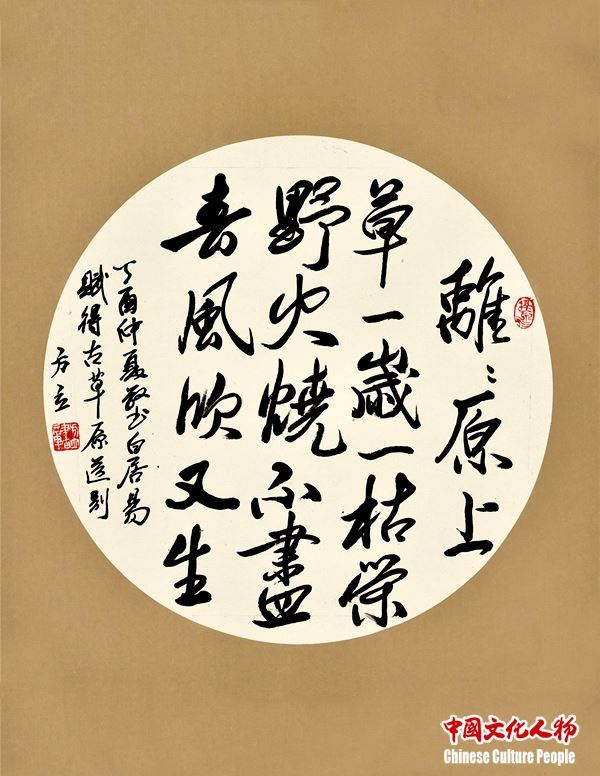 離〻原上
草一歲一枯榮
野火燒不盡
春風吹又生
丁酉仲夏敬书白居易
賦得古草原送别
方立
中國文化人物
Chinese Culture People